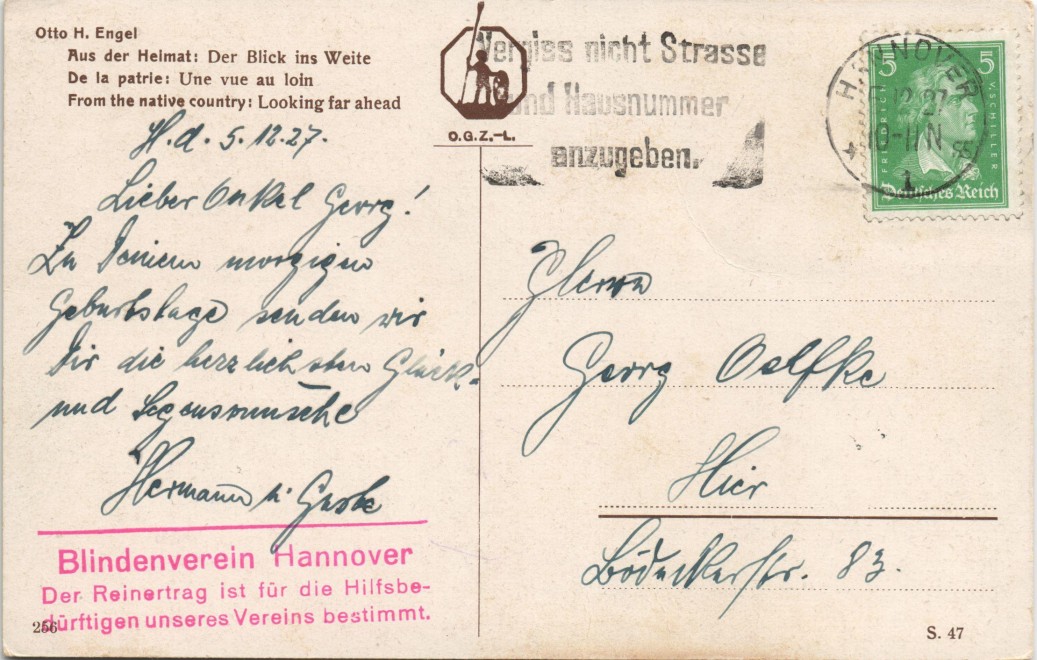 Otto H. Engel
Aus der Heimat: Der Blick ins Weite
De la patrie: Une vue au loin
From the native country: Looking far ahead
O.G.Z.-L.
H.d. 5.12.27.
Lieber Onkel Georg!
Zu Deinem morgigen
Geburtstage senden wir
Dir die herzlichsten Glück-
und Segenswünsche
Hermann u.
Blindenverein Hannover
Der Reinertrag ist für die Hilfsbe-
dürftigen unseres Vereins bestimmt.
256
Vergiss nicht Strasse
und Hausnummer
anzugeben.
HANNOVER
5.12.27
10-11 N
1
5 5
FRIEDRICH V SCHILLER
Deutsches Reich
Herrn
Georg Oelfke
Hier
Bödekerstr. 83.
S. 47